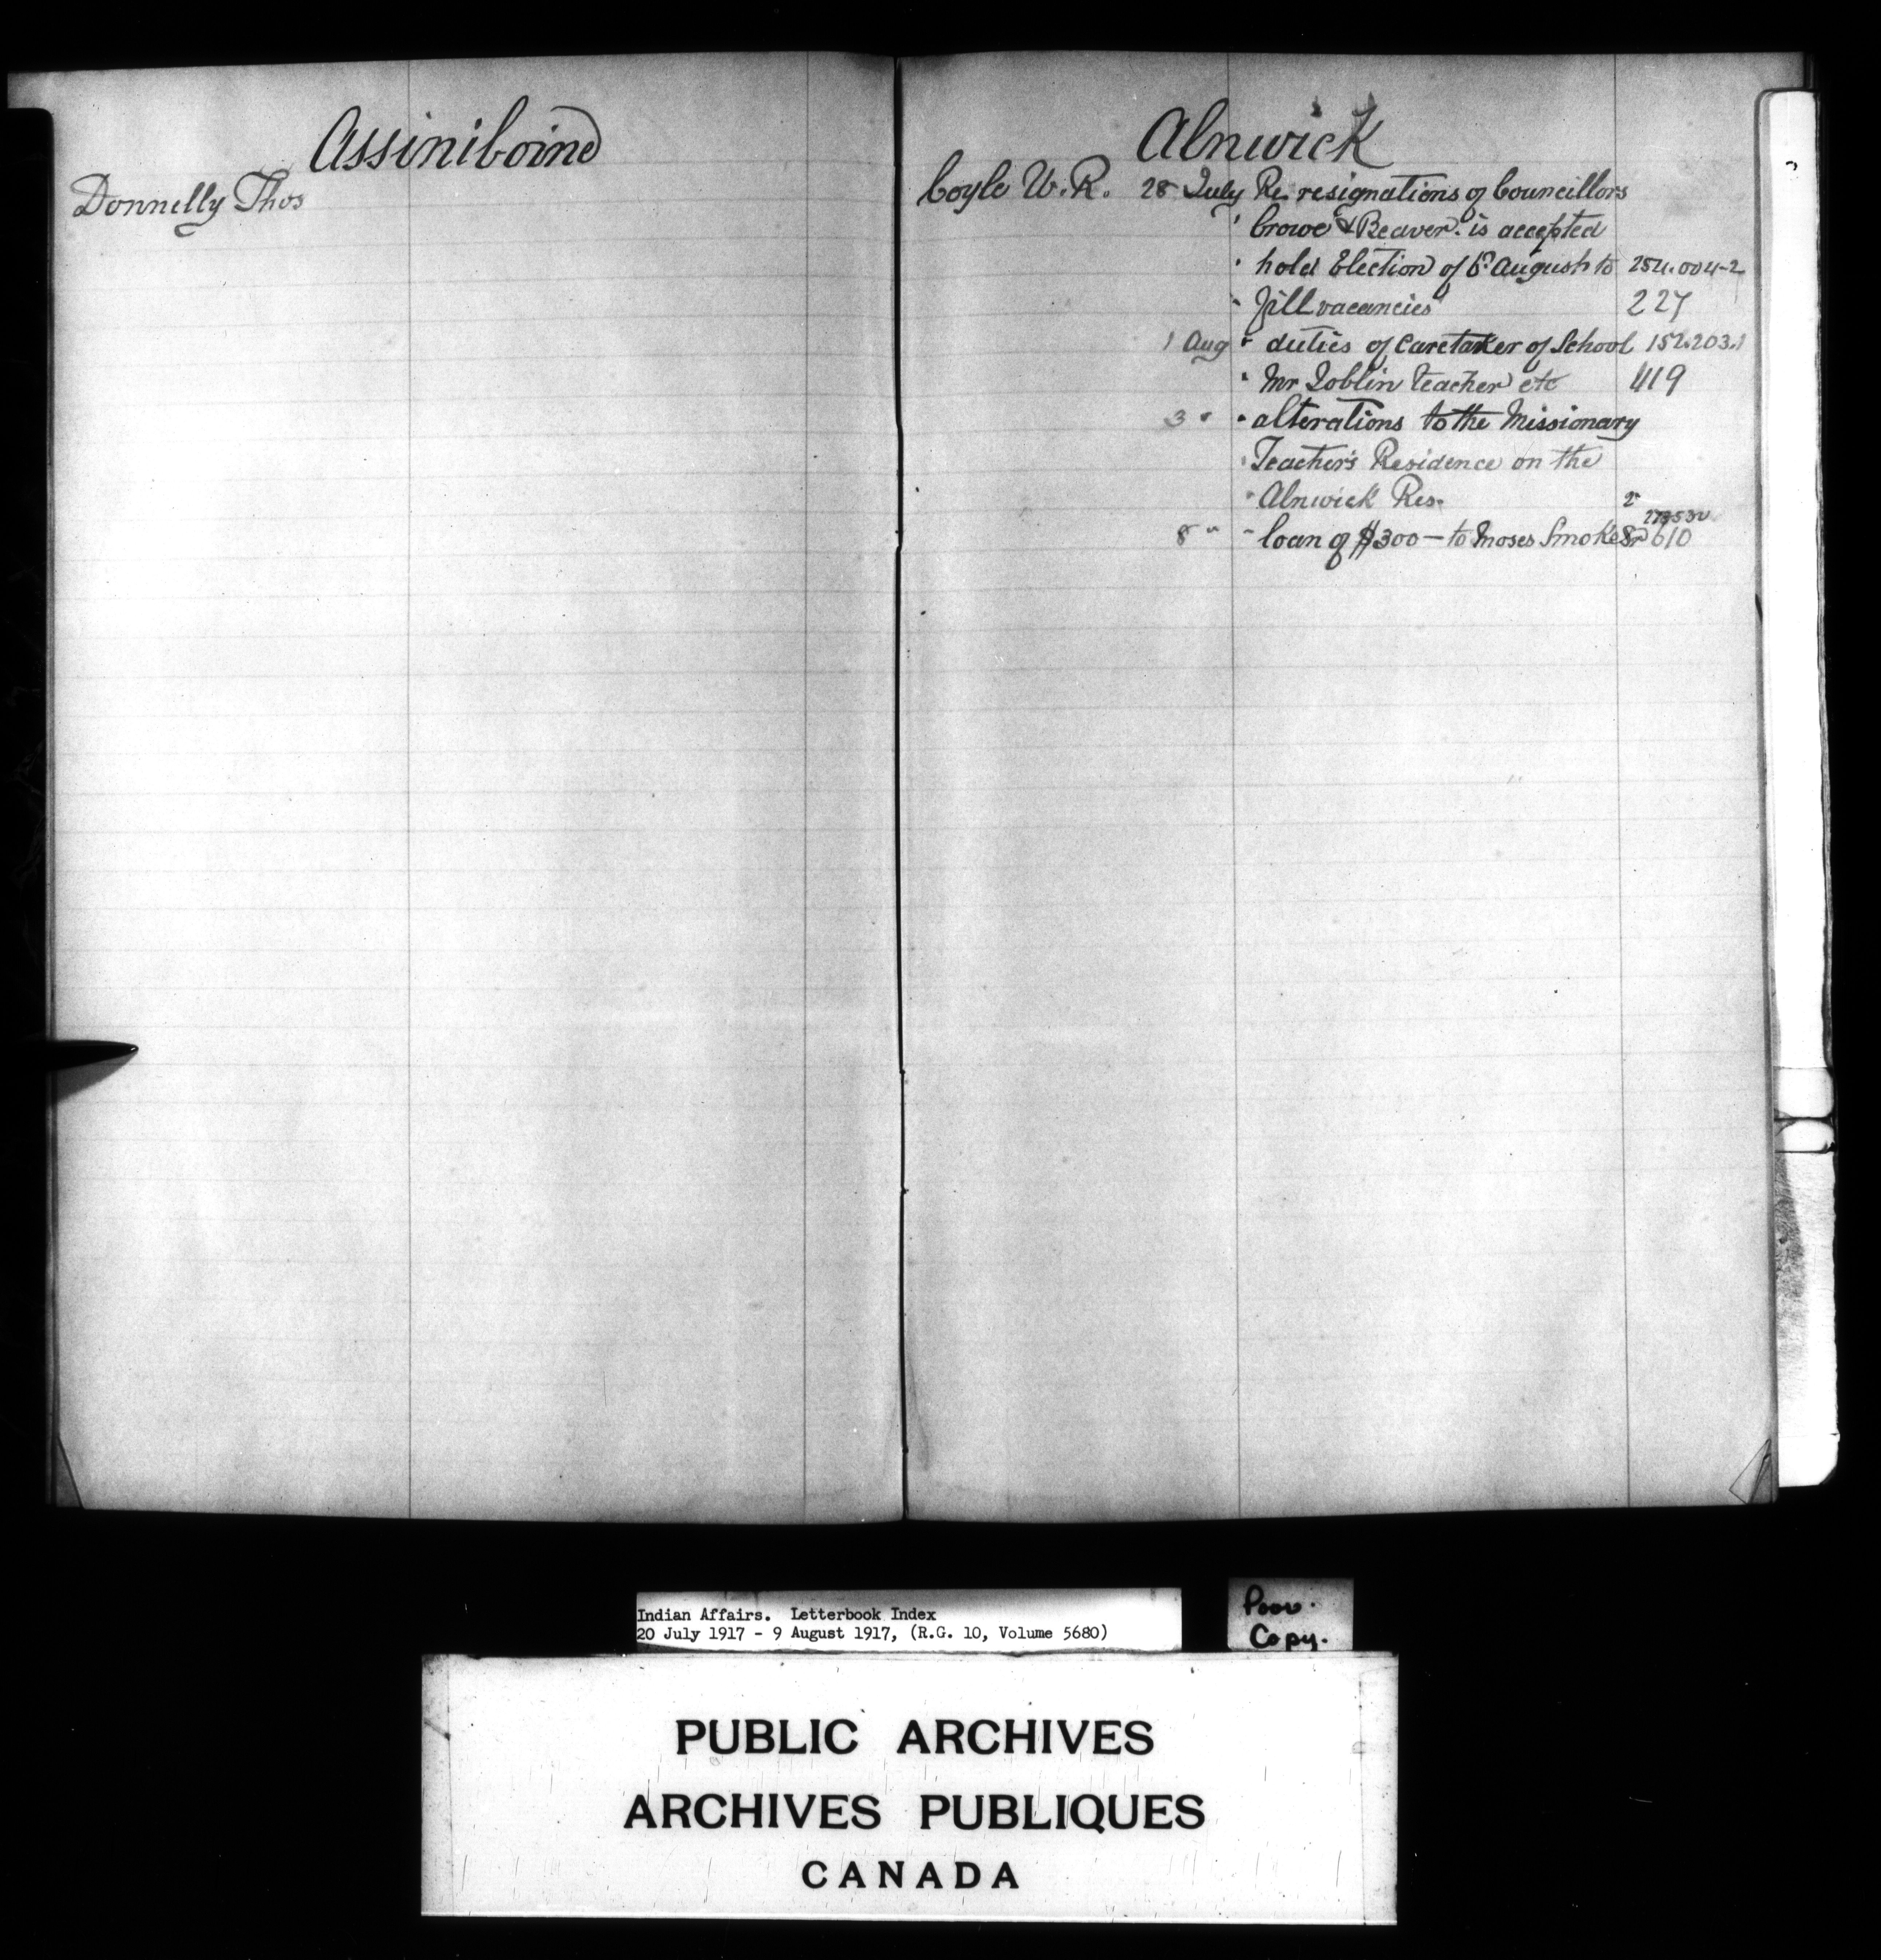 Assiniboine
Donnelly Thos
Alnwick
Coyle W. R. 28 July Re resignations of Councillors
" Crowe & Beaver. is accepted
" hold Election of August to 254.004-2
" fill vacancies 227
1 Aug " duties of Caretaker of School 152.203.1
" Mr Joblin teacher etc 419
3 " " alterations to the Missionary
" Teacher's Residence on the
" Alnwick Res. 2
273530
8 " " loan of $300 — to Moses Smoke Sr 610
Indian Affairs. Letterbook Index
20 July 1917 - 9 August 1917, (R.G. 10, Volume 5680)
Poor.
Copy.
PUBLIC ARCHIVES
ARCHIVES PUBLIQUES
CANADA